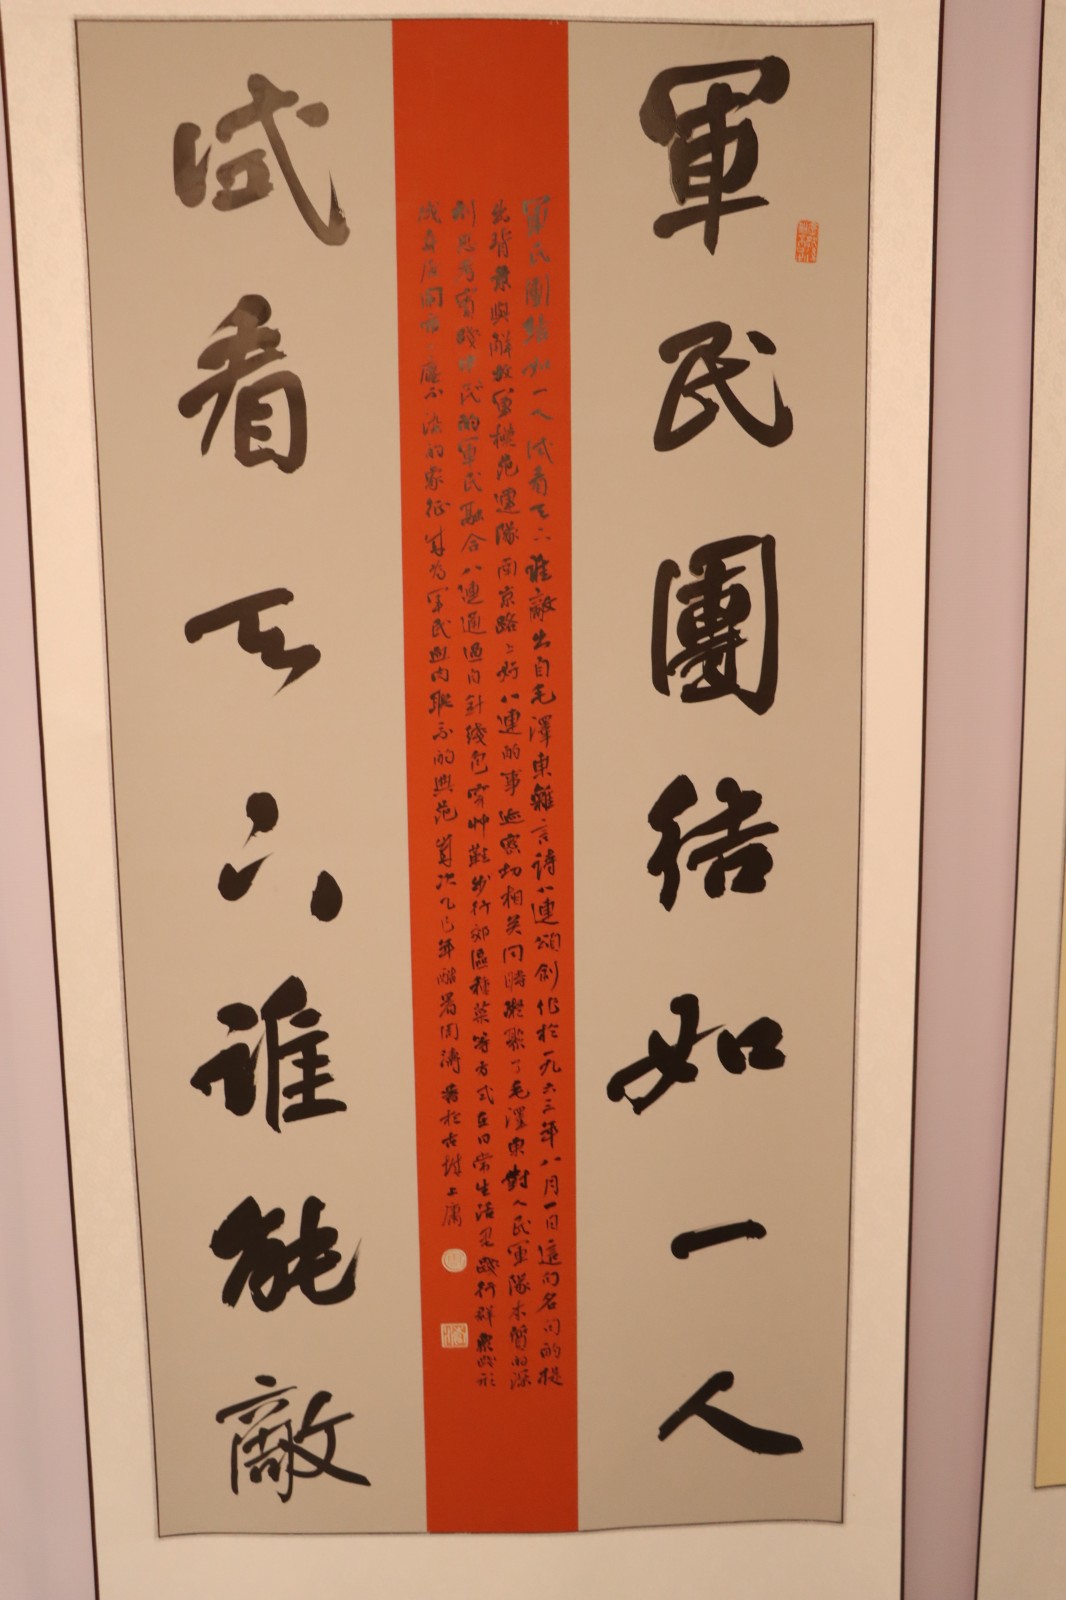 軍民團結如一人
試看天下誰能敵
軍民團結如一人試看天下誰敵出自毛澤東雜言詩八連頌創作於一九六三年八月一日這句名句的提
出背景與解放軍模范連隊南京路上好八連的事迹密切相关同時凝聚了毛澤東對人民軍隊本質的深
刻思考實踐中民的軍民融合八連通過自針綫包穿艸鞋步行郊區種菜等方式在日常生活里踐行群衆路
成為軍民血肉聯系的典范歲次乙巳年 周濤書於古